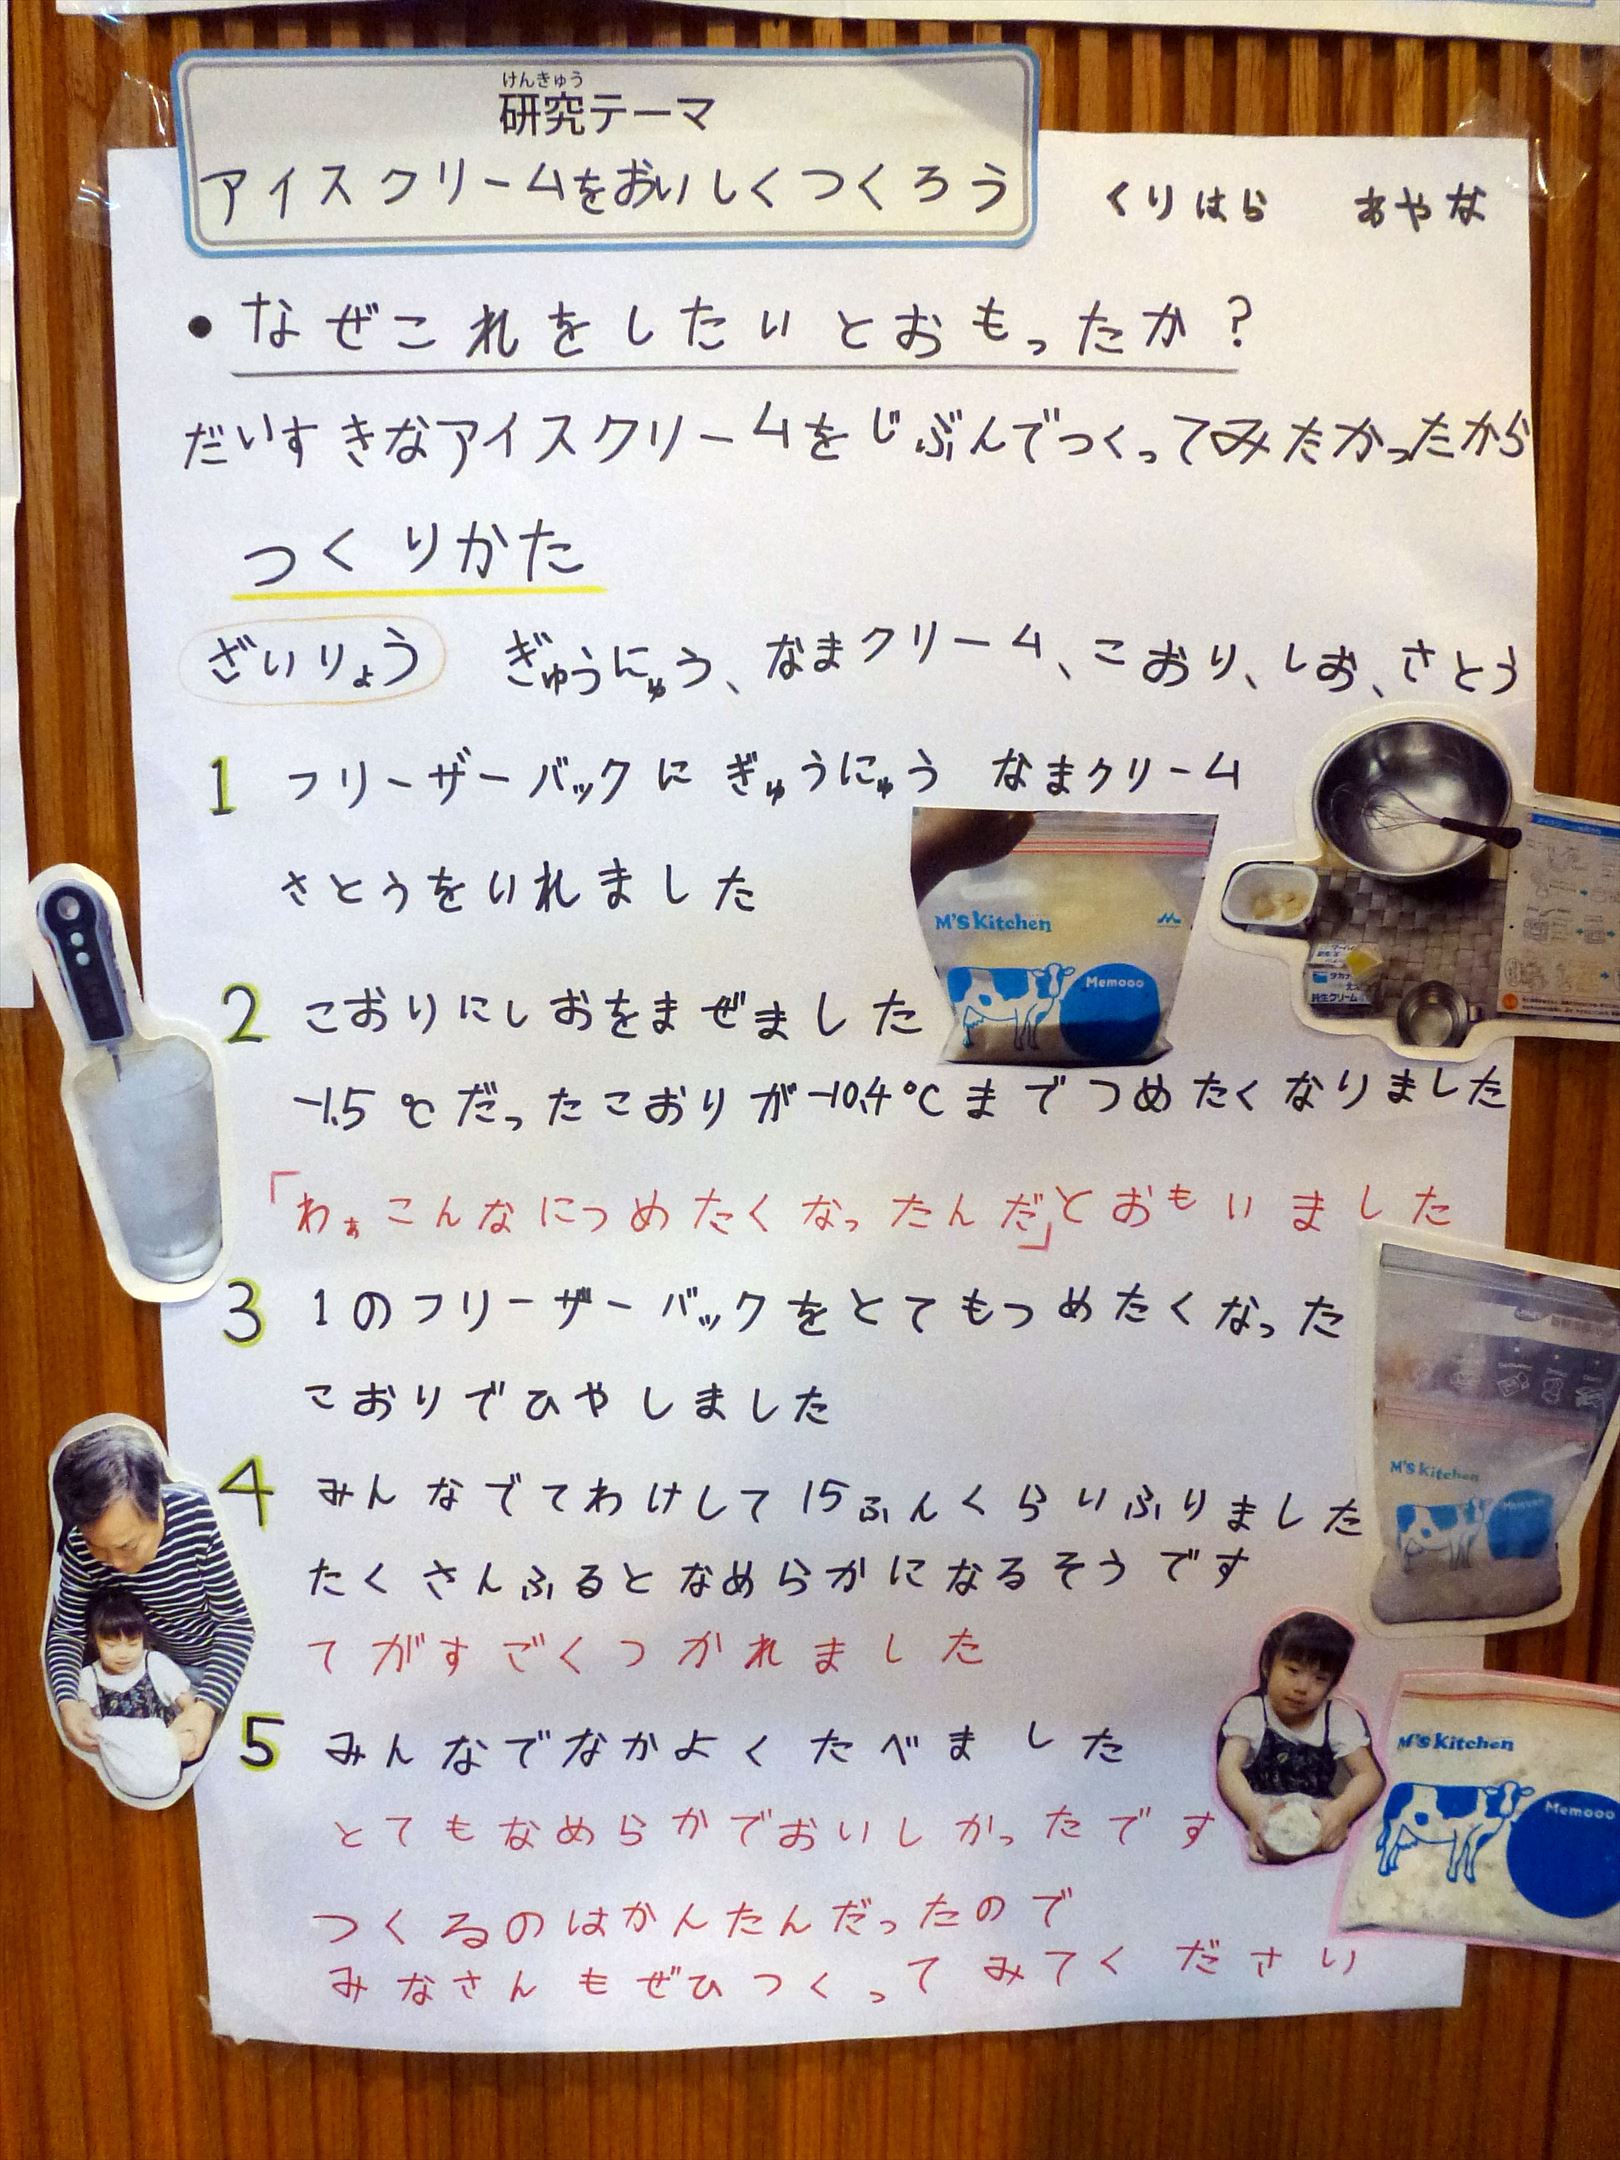 けんきゅう
研究テーマ
アイスクリームをおいしくつくろう
くりはら あやな
• なぜこれをしたいとおもったか？
だいすきなアイスクリームをじぶんでつくってみたかったから
つくりかた
ざいりょう ぎゅうにゅう、なまクリーム、こおり、しお、さとう
1 フリーザーバックに ぎゅうにゅう なまクリーム
さとうをいれました
M's Kitchen
Memooo
タカナ
純生クリーム
2 こおりにしおをまぜました
-1.5℃だったこおりが-10.4℃までつめたくなりました
「わぁこんなにつめたくなったんだ」とおもいました
3 1のフリーザーバックをとてもつめたくなった
こおりでひやしました
M's Kitchen
4 みんなでてわけして15ふんくらいふりました
たくさんふるとなめらかになるそうです
てがすごくつかれました
5 みんなでなかよくたべました
とてもなめらかでおいしかったです
M's Kitchen
Memooo
つくるのはかんたんだったので
みなさんもぜひつくってみてください